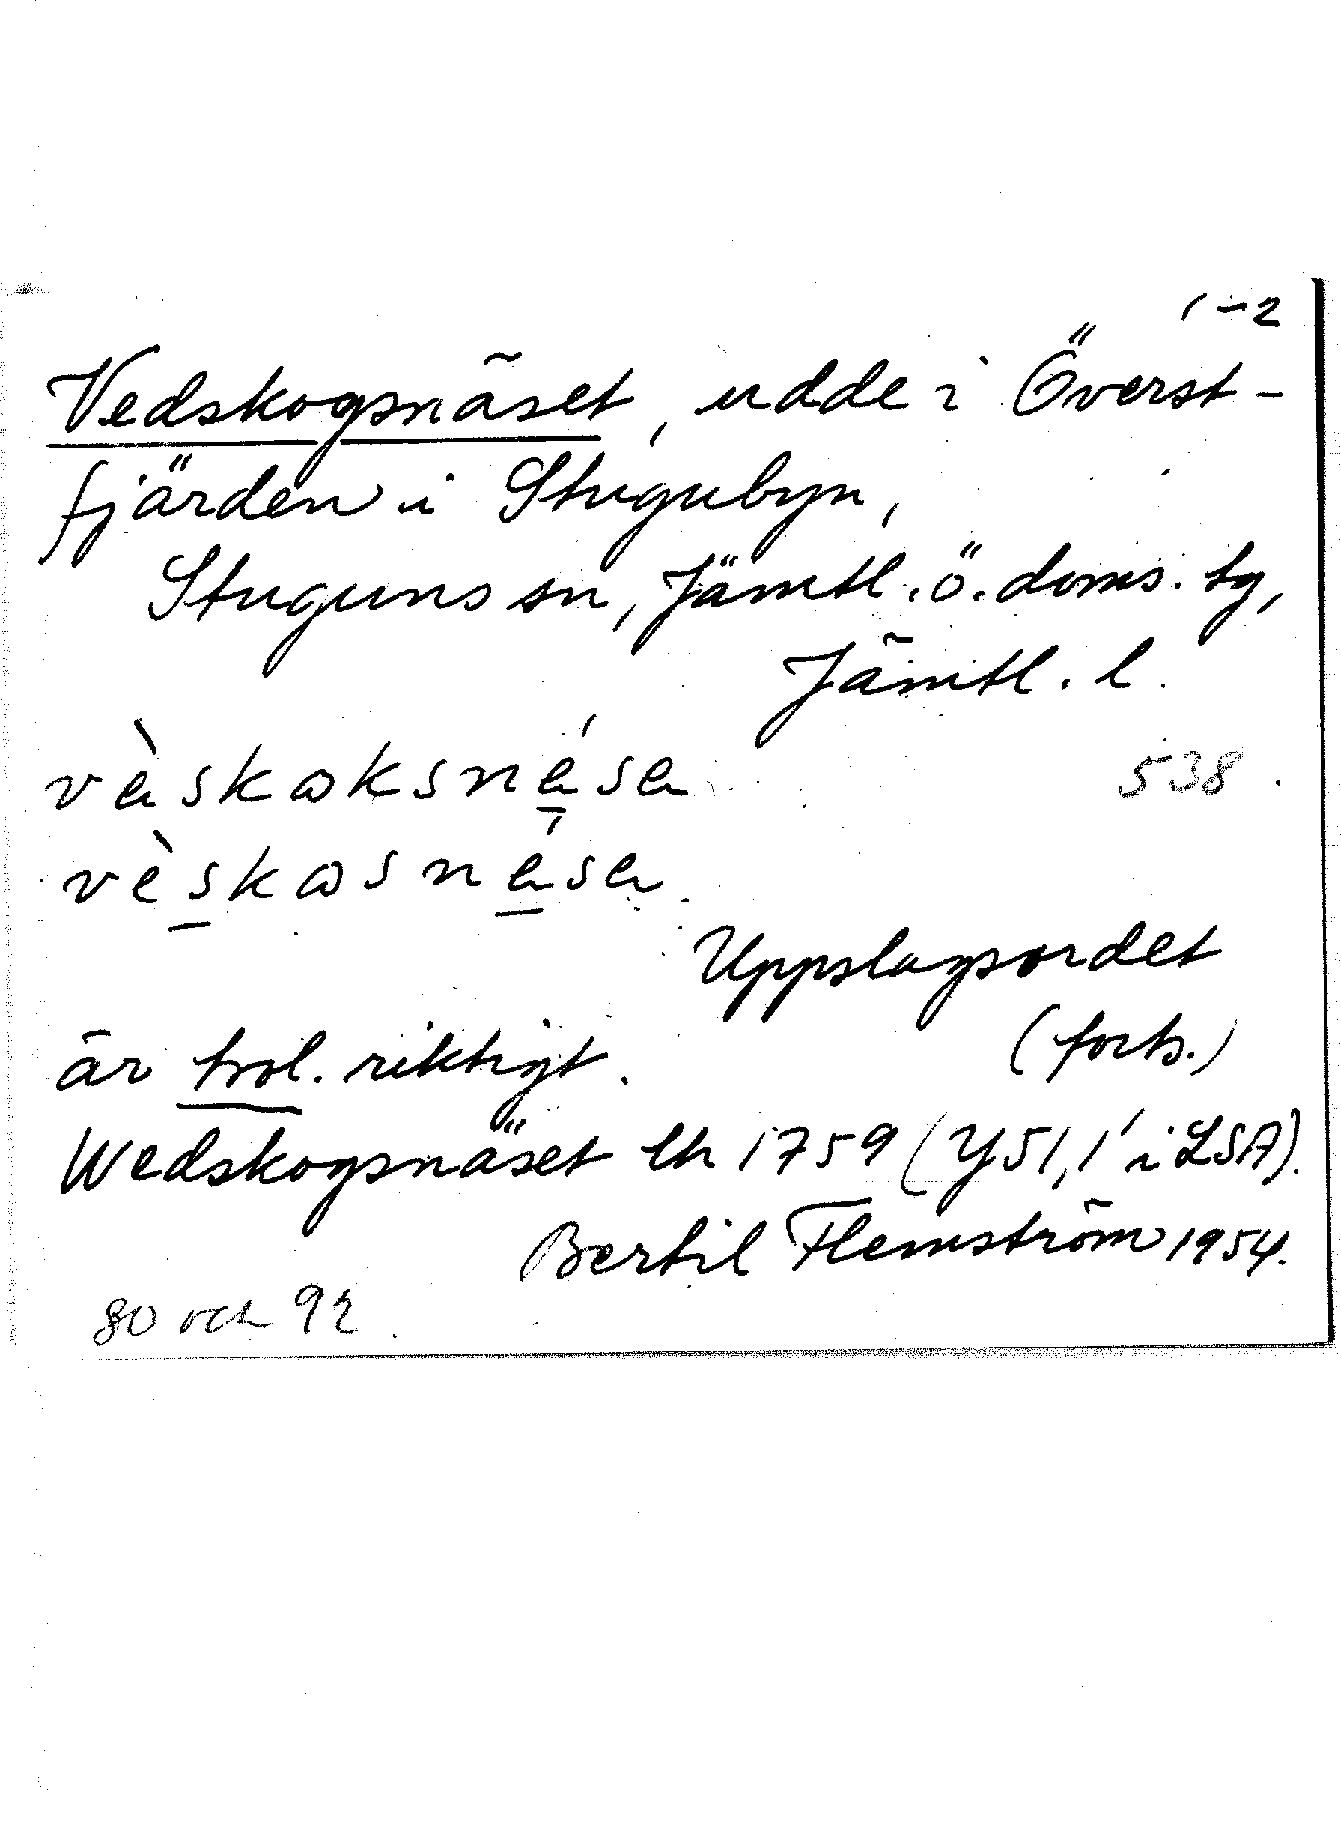 1–2
Vedskogsnäset, udde i Överst-
fjärden i Stugubyn,
Stuguns sn, Jämtl. ö. doms. tg,
Jämtl. l.
vèskωksnése
538
vèskωsnése
Uppslagsordet
är trol. riktigt.
(forts.)
Wedskogsnäset lh 1759 (Y51,1' i LSA).
Bertil Flemström 1954.
80 och 92